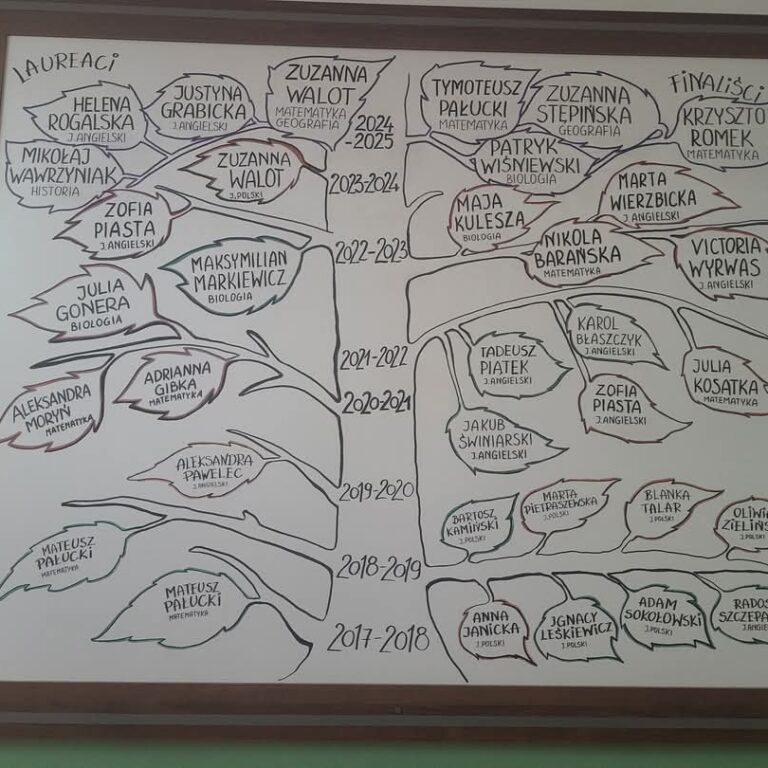 LAUREACI
HELENA
ROGALSKA
J.ANGIELSKI
JUSTYNA
GRABICKA
J.ANGIELSKI
ZUZANNA
WALOT
MATEMATYKA
GEOGRAFIA
MIKOŁAJ
WAWRZYNIAK
HISTORIA
ZUZANNA
WALOT
J.POLSKI
ZOFIA
PIASTA
J.ANGIELSKI
MAKSYMILIAN
MARKIEWICZ
BIOLOGIA
JULIA
GONERA
BIOLOGIA
ALEKSANDRA
MORYŃ
MATEMATYKA
ADRIANNA
GIBKA
MATEMATYKA
ALEKSANDRA
PAWELEC
J.ANGIELSKI
MATEUSZ
PAŁUCKI
MATEMATYKA
MATEUSZ
PAŁUCKI
MATEMATYKA
2024
-2025
2023-2024
2022-2023
2021-2022
2020-2021
2019-2020
2018-2019
2017-2018
FINALIŚCI
TYMOTEUSZ
PAŁUCKI
MATEMATYKA
ZUZANNA
STEPIŃSKA
GEOGRAFIA
KRZYSZTO
ROMEK
MATEMATYKA
PATRYK
WIŚNIEWSKI
BIOLOGIA
MAJA
KULESZA
BIOLOGIA
MARTA
WIERZBICKA
J.ANGIELSKI
NIKOLA
BARAŃSKA
MATEMATYKA
VICTORIA
WYRWAS
J.ANGIELSKI
TADEUSZ
PIATEK
J.ANGIELSKI
KAROL
BŁASZCZYK
J.ANGIELSKI
JULIA
KOSĄTKA
MATEMATYKA
ZOFIA
PIASTA
J.ANGIELSKI
JAKUB
ŚWINIARSKI
J.ANGIELSKI
BARTOSZ
KAMIŃSKI
J.POLSKI
MARTA
PIETRASZEWSKA
J.POLSKI
BLANKA
TALAR
J.POLSKI
OLIWI
ZIELIŃS
J.POLSKI
ANNA
JANICKA
J.POLSKI
IGNACY
LEŚKIEWICZ
J.POLSKI
ADAM
SOKOŁOWSKI
J.POLSKI
RADOS
SZCZEPA
J.ANGIE